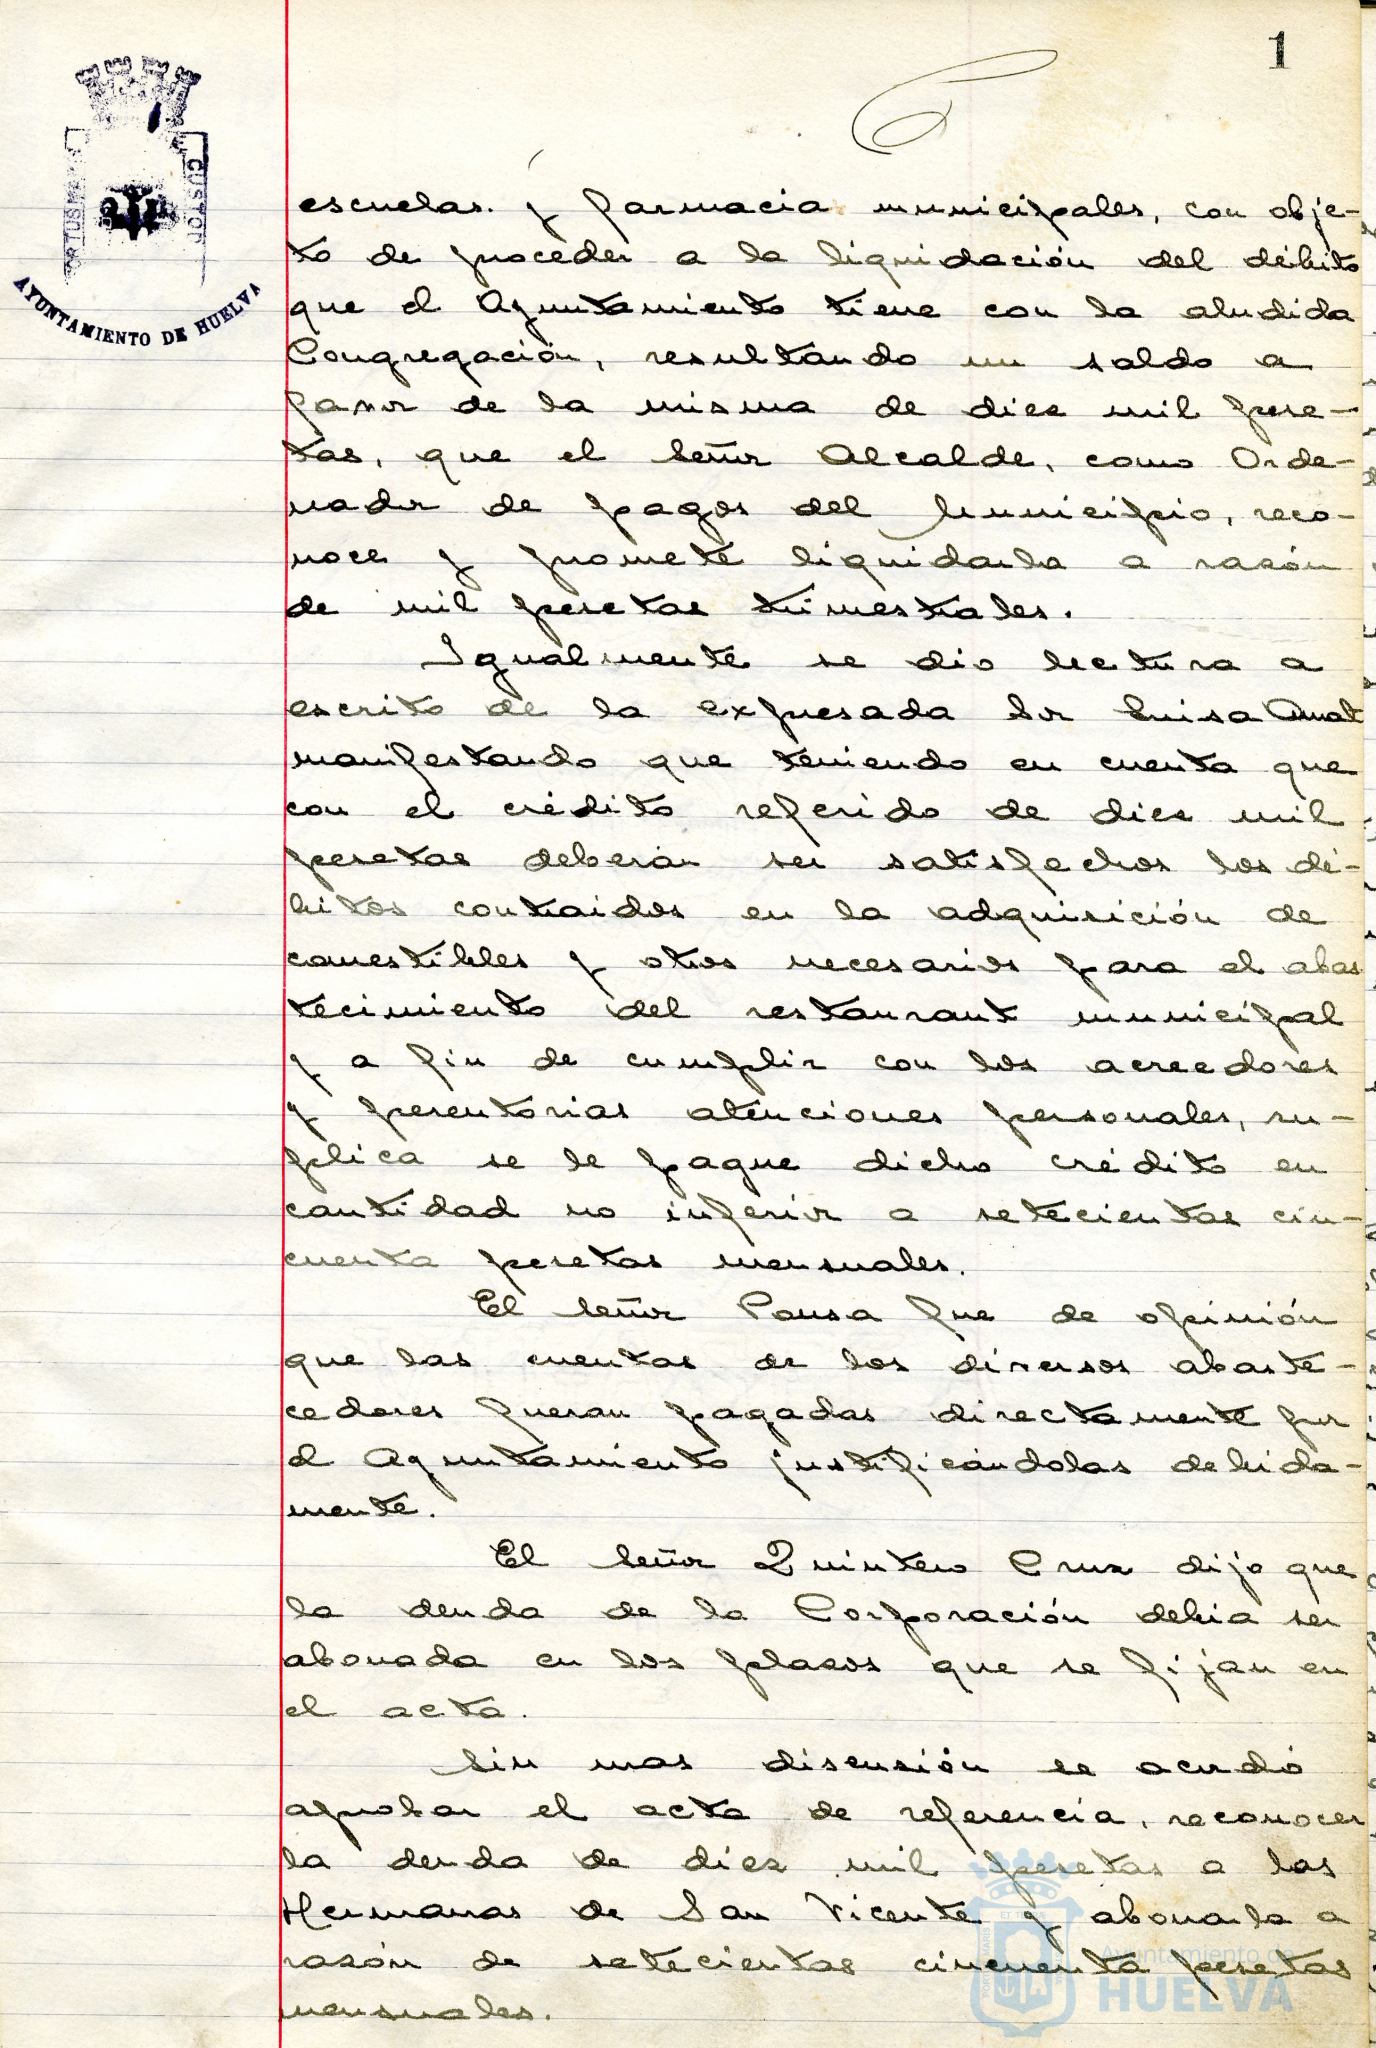 1
PORTUS MARIS
CUSTODIA
AYUNTAMIENTO DE HUELVA
escuelas y farmacia municipales, con obje-
to de proceder a la liquidación del débito
que el Ayuntamiento tiene con la aludida
Congregación, resultando un saldo a
favor de la misma de diez mil pese-
tas, que el Señor Alcalde, como Orde-
nador de pagos del Municipio, reco-
noce y promete liquidarla a razón
de mil pesetas trimestrales.
Igualmente se dio lectura a
escrito de la expresada Sor Luisa Amat
manifestando que teniendo en cuenta que
con el crédito referido de diez mil
pesetas deberán ser satisfechos los dé-
bitos contraidos en la adquisición de
comestibles y otros necesarios para el abas
tecimiento del restaurant municipal
y a fin de cumplir con los acreedores
y perentorias atenciones personales, su-
plica se le pague dicho crédito en
cantidad no inferior a setecientas cin-
cuenta pesetas mensuales.
El Señor Pousa fue de opinión
que las cuentas de los diversos abaste-
cedores fueran pagadas directamente por
el Ayuntamiento justificándolas debida-
mente.
El Señor Quintero Cruz dijo que
la deuda de la Corporación debia ser
abonada en los plazos que se fijan en
el acta.
Sin mas discusión se acordó
aprobar el acta de referencia, reconocer
la deuda de diez mil pesetas a las
Hermanas de San Vicente y abonarla a
razón de setecientas cincuenta pesetas
mensuales.
Ayuntamiento de
HUELVA